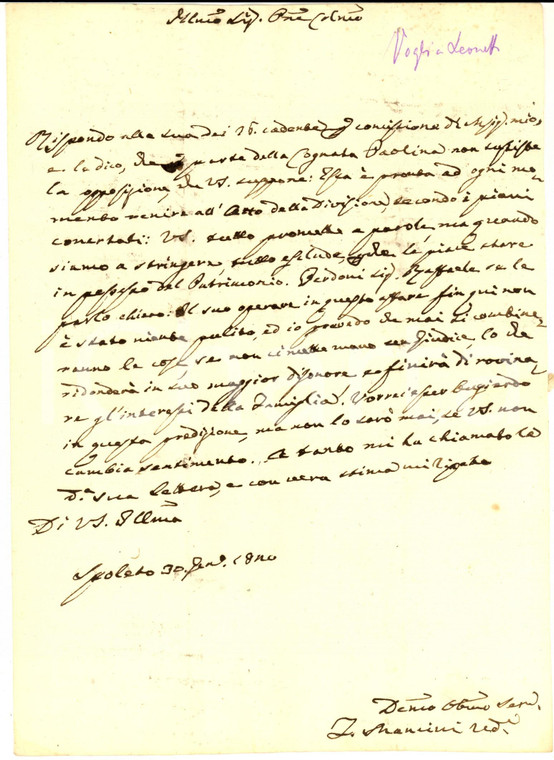 Illmo Sig. Pne Colmo
Voglia Leonetti
Rispondo alla sua dei 26. cadente commissione di Msig. mio,
e le dico, che parte della Cognata Paolina non sussiste
la opposizione, che VS. suppone: Essa è pronta ad ogni mo-
mento venire all'Atto della Divisione, secondo i piani
concertati: VS. tutto promette a parole, ma quando
siamo a stringere tutto esclude, le piace stare
in possesso del Patrimonio. Perdoni Sig. Raffaele se le
parlo chiaro: Il suo operare in quest'affare fin qui non
è stato niente pulito, ed io prevedo che mai si combine-
ranno le cose, se non ci mette mano un Giudice, lo che
ridonderà in suo maggior disonore e finirà di rovina-
re gl'interessi della Famiglia. Vorrei esser bugiardo
in questa predizione, ma non lo sarò mai, se VS. non
cambia sentimento. A tanto mi ha chiamato la
d.a sua lettera, e con vera stima mi ripeto
Di VS. Illma
Spoleto 30. Gen.
Devmo Obmo Serv.
Mancini